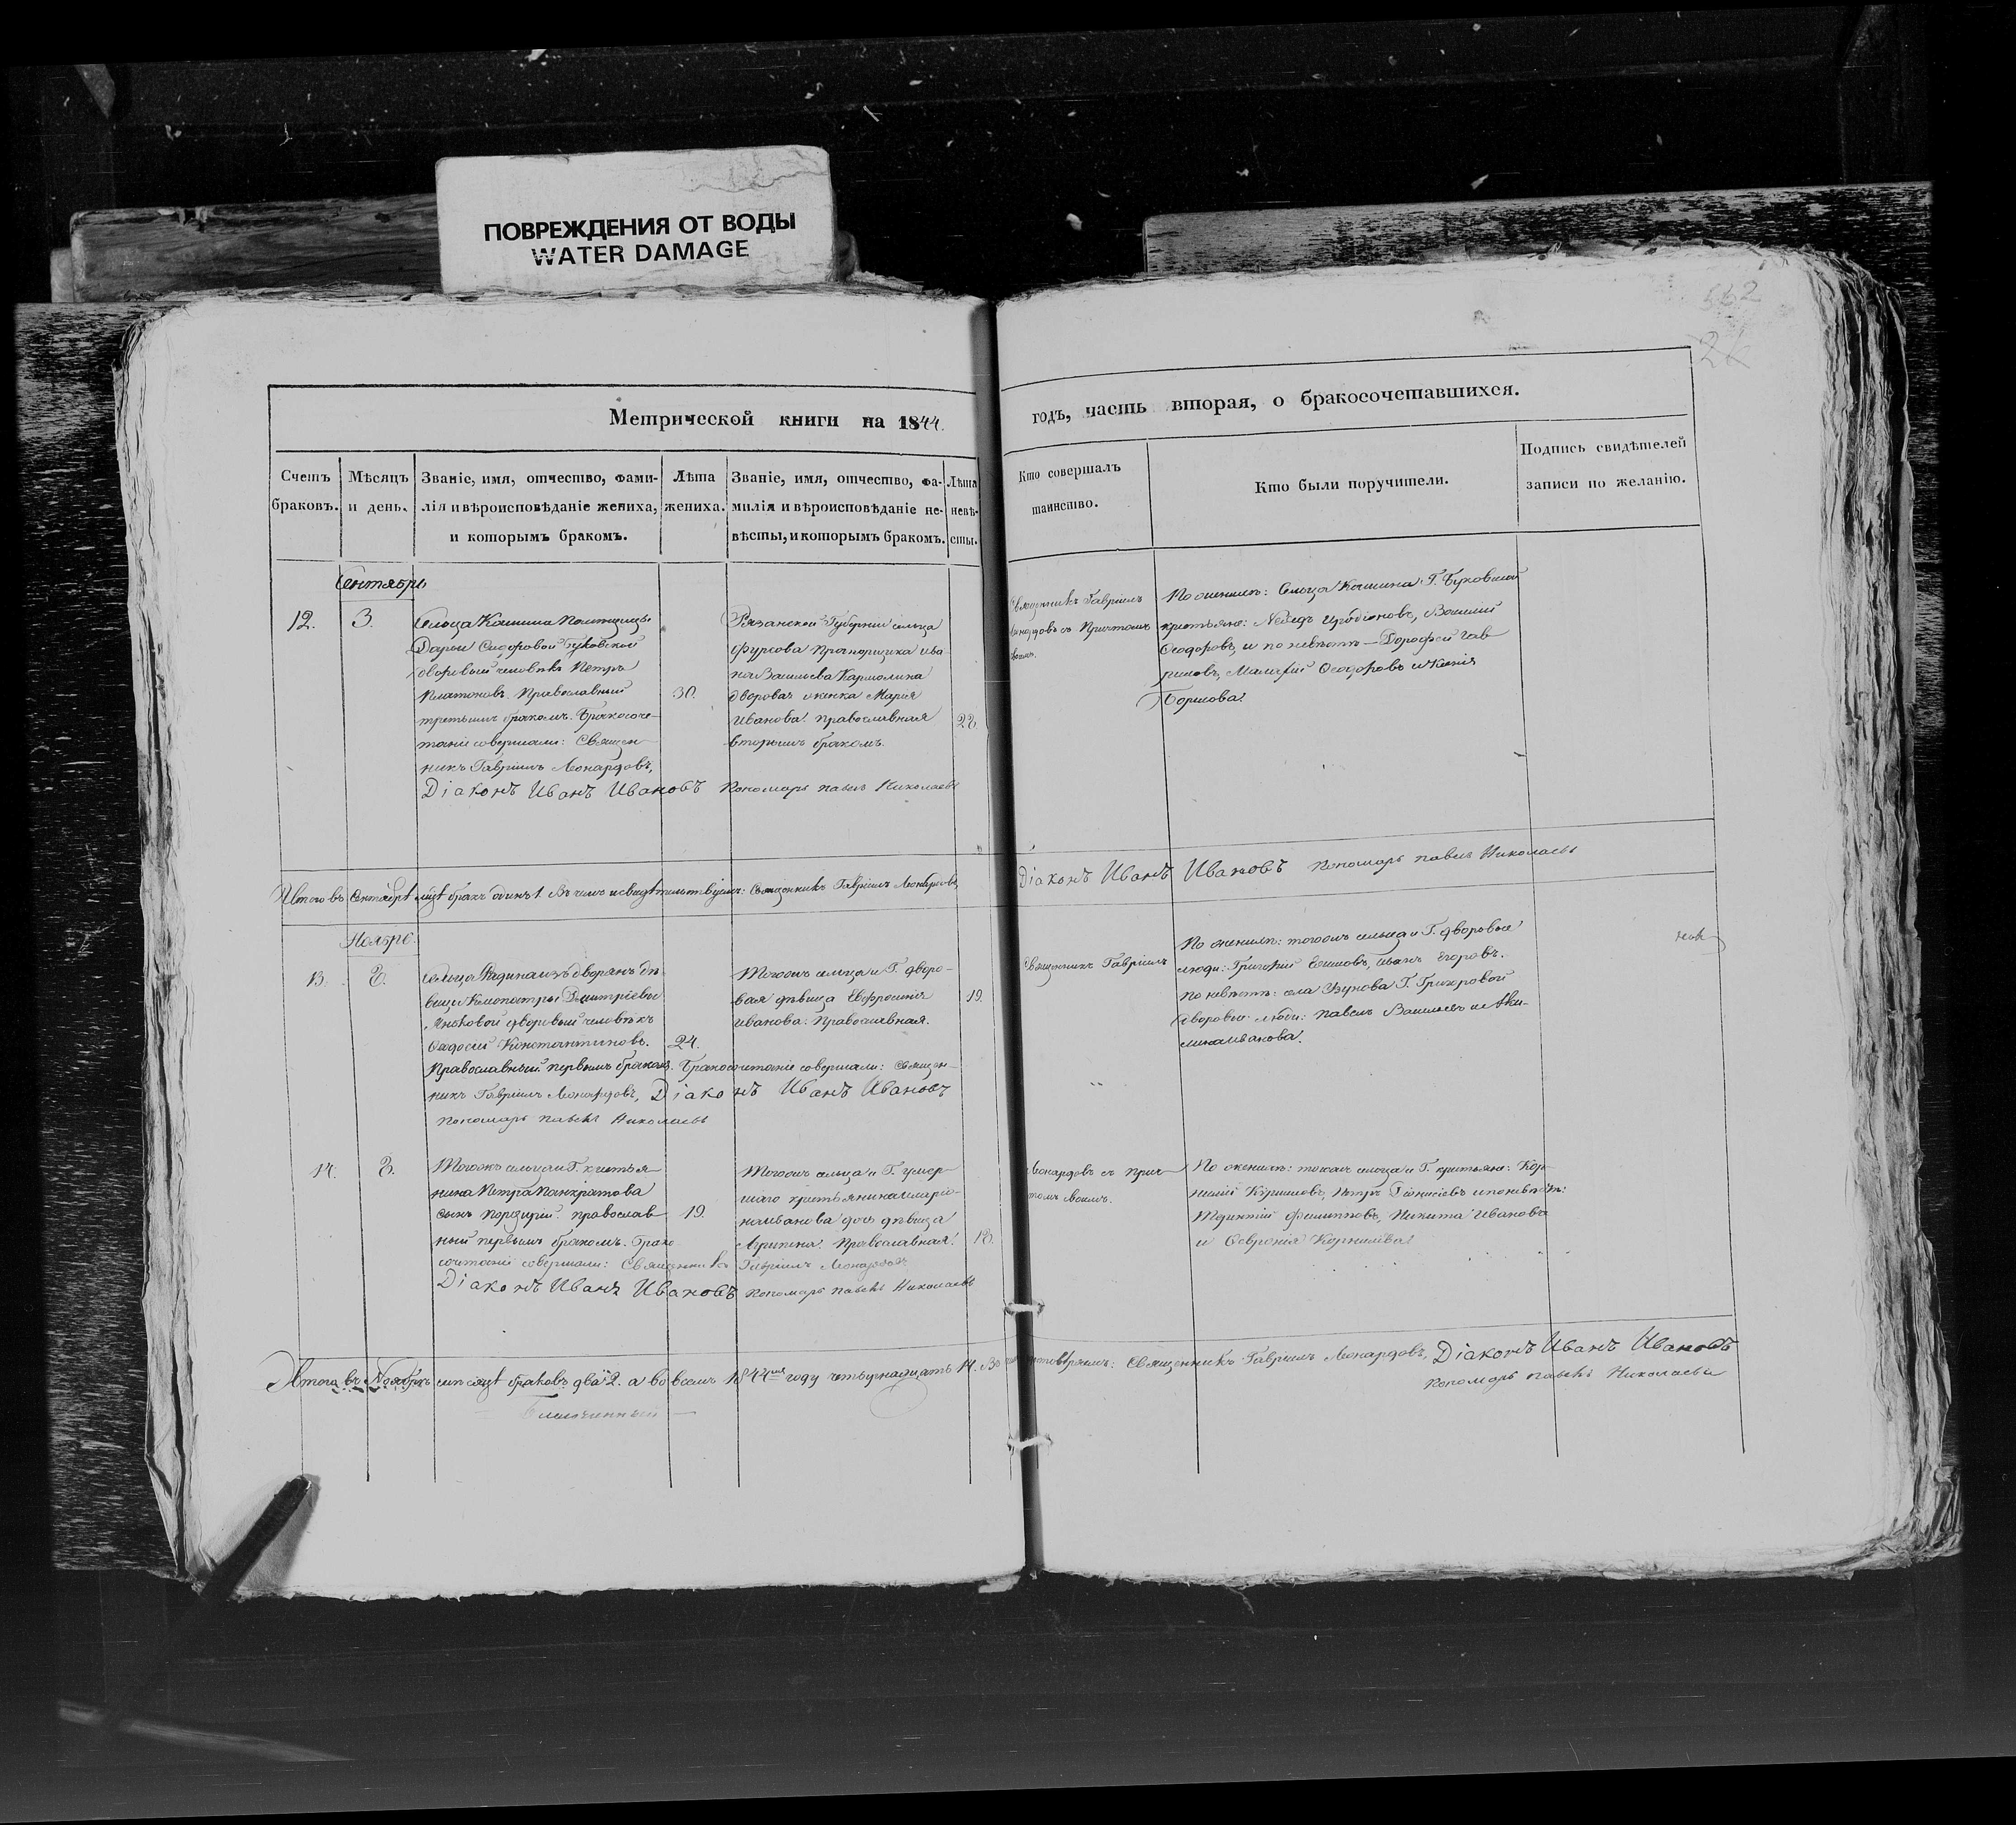 ПОВРЕЖДЕНИЯ ОТ ВОДЫ
WATER DAMAGE
Метрической книги на 1844.
годъ, часть вторая, о бракосочетавшихся.
Счетъ браковъ.
Мѣсяцъ и день.
Званіе, имя, отчество, фами-
лія и вѣроисповѣданіе жениха,
и которымъ бракомъ.
Лѣта жениха.
Званіе, имя, отчество, фа-
милія и вѣроисповѣданіе не-
вѣсты, и которымъ бракомъ.
Лѣта невѣ-
сты.
Кто совершалъ
таинство.
Кто были поручители.
Подпись свидѣтелей
записи по желанію.
Сентябрь
12.
3.
Сельца Кашина Помѣщицы
Дарьи Сидоровой Буковской
дворовый человѣкъ Петръ
Платоновъ. Православный
третьимъ бракомъ. Бракосоче-
таніе совершали: Священ-
никъ Гавріилъ Леонардовъ,
Діаконъ Иванъ Ивановъ Пономарь Павелъ Николаевъ
30.
Рязанской Губерніи сельца
Фурсова Прапорщика Ива
на Васильева Кармолина
дворовая женка Марья
Иванова. Православная
вторымъ бракомъ.
28.
Священникъ Гавріилъ
Леонардовъ съ Причтомъ
По женихѣ: Сельца Кашина Г. Буковской
крестьяне:
Ѳеодоровъ, и по невѣстѣ — Дорофей Гав
риловъ, Ѳеодоровъ и
Борисова.
Итого въ Сентябрѣ м-цѣ бракъ одинъ 1. Въ чемъ и свидѣтельствуемъ: Священникъ Гавріилъ Леонардовъ,
Діаконъ Иванъ Ивановъ Пономарь Павелъ Николаевъ
Ноябрь.
13.
8.
Сельца изъ дворянъ дѣ
вицы Клеопатры Дмитріевны
Яньковой дворовый человѣкъ
Ѳедосей Константиновъ.
Православный первымъ бракомъ. Бракосочетаніе совершали: Священ-
никъ Гавріилъ Леонардовъ, Діаконъ Иванъ Ивановъ
Пономарь Павелъ Николаевъ
24.
Тогожъ сельца и Г. дворо-
вая дѣвица Евфросинія
Иванова. Православная.
19.
Священникъ Гавріилъ
По женихѣ: тогожъ сельца и Г. дворовые
люди: Григорій Иванъ Егоровъ.
По невѣстѣ: села Узунова Г.
дворовые люди: Павелъ Васильевъ и Аку-
лина Иванова.
14.
8.
Тогожъ сельца и Г. крестья
нина Петра Панкратова
сынъ Порфирій. Православ
ный первымъ бракомъ. Брако
сочетаніе совершали: Священникъ Гавріилъ Леонардовъ
Діаконъ Иванъ Ивановъ Пономарь Павелъ Николаевъ
19.
Тогожъ сельца и Г. умер
шаго крестьянина Иларіо-
на Иванова дочь дѣвица
Агрипина. Православная.
18.
Леонардовъ съ прич
томъ своимъ.
По женихѣ: тогожъ сельца и Г. крестьяне: Кор-
нилій Кириловъ, Петръ Діонисіевъ и по невѣстѣ:
Филипповъ, Никита Ивановъ
и Ѳевронія Корнилова.
Итого въ Ноябрѣ мѣсяцѣ браковъ два 2. а во всемъ 1844мъ году четырнадцать 14. Священникъ Гавріилъ Леонардовъ, Діаконъ Иванъ Ивановъ
Пономарь Павелъ Николаевъ